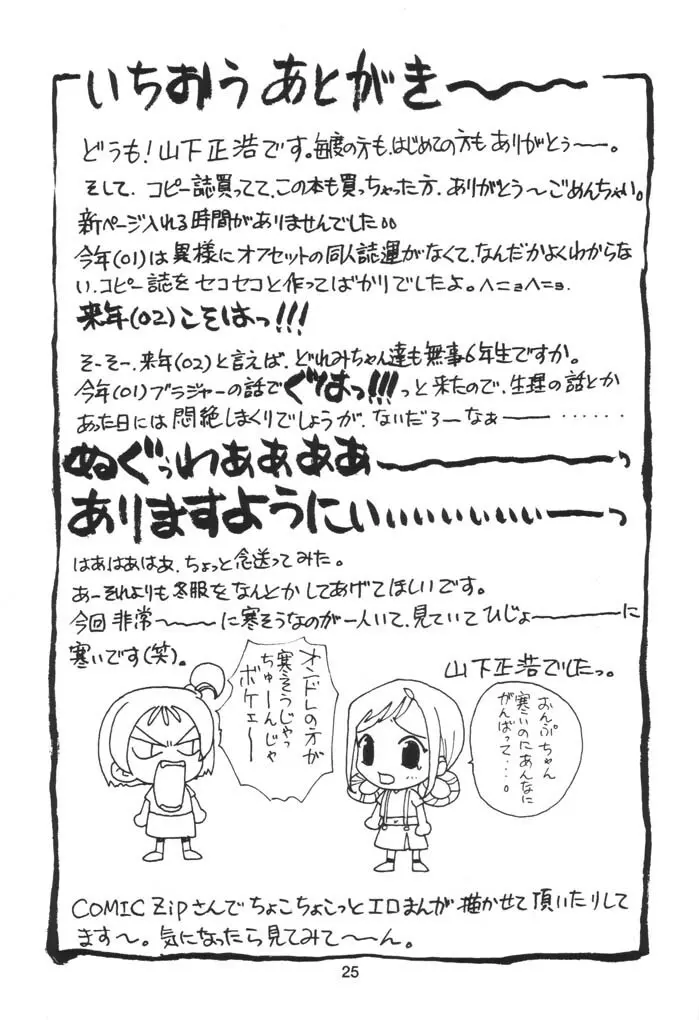 いちおう あとがき〜〜〜
どうも!山下正浩です。毎度の方も、はじめての方も ありがとう〜ー。
そして、コピー誌買ってて、この本も買っちゃった方、ありがとう〜ごめんちゃい。
新ページ入れる時間がありませんでした。。
今年(01)は異様にオフセットの同人誌運がなくて、なんだかよくわからな
い、コピー誌をセコセコと作ってばかりでしたよ。ヘニョヘニョ。
来年(02)こそはっ!!!
そーそー、来年(02)と言えば、どれみちゃん達も無事6年生ですか。
今年(01)ブラジャーの話でぐはっ!!!っと来たので、生理の話とか
あった日には悶絶しまくりでしょうが、ないだろーなぁー‥‥‥
ぬぐっわぁぁぁぁ〜〜〜っ
ありますようにぃぃぃぃぃぃぃぃーっ
はあはあはぁ、ちょっと念送ってみた。
あーそれよりも冬服をなんとかしてあげてほしいです。
今回非常〜〜に寒そうなのが一人いて、見ていてひじょーーに
寒いです(笑)。
山下正浩でしたっ。
オンドレの方が
寒そうじゃっ
ちゅーんじゃ
ボケェ〜
おんぷちゃん
寒いのにあんなに
がんばって・・・。
COMIC Zipさんでちょこちょこっとエロまんが描かせて頂いたりして
ます〜。気になったら見てみて〜ん。
25